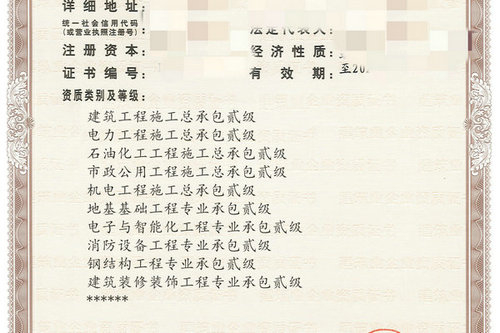 详细地址:
统一社会信用代码
(或营业执照注册号):
法定代表人:
注册资本:
经济性质:
证书编号:
有效期:
至20
资质类别及等级:
建筑工程施工总承包贰级
电力工程施工总承包贰级
石油化工工程施工总承包贰级
市政公用工程施工总承包贰级
机电工程施工总承包贰级
地基基础工程专业承包贰级
电子与智能化工程专业承包贰级
消防设备工程专业承包贰级
钢结构工程专业承包贰级
建筑装修装饰工程专业承包贰级
******